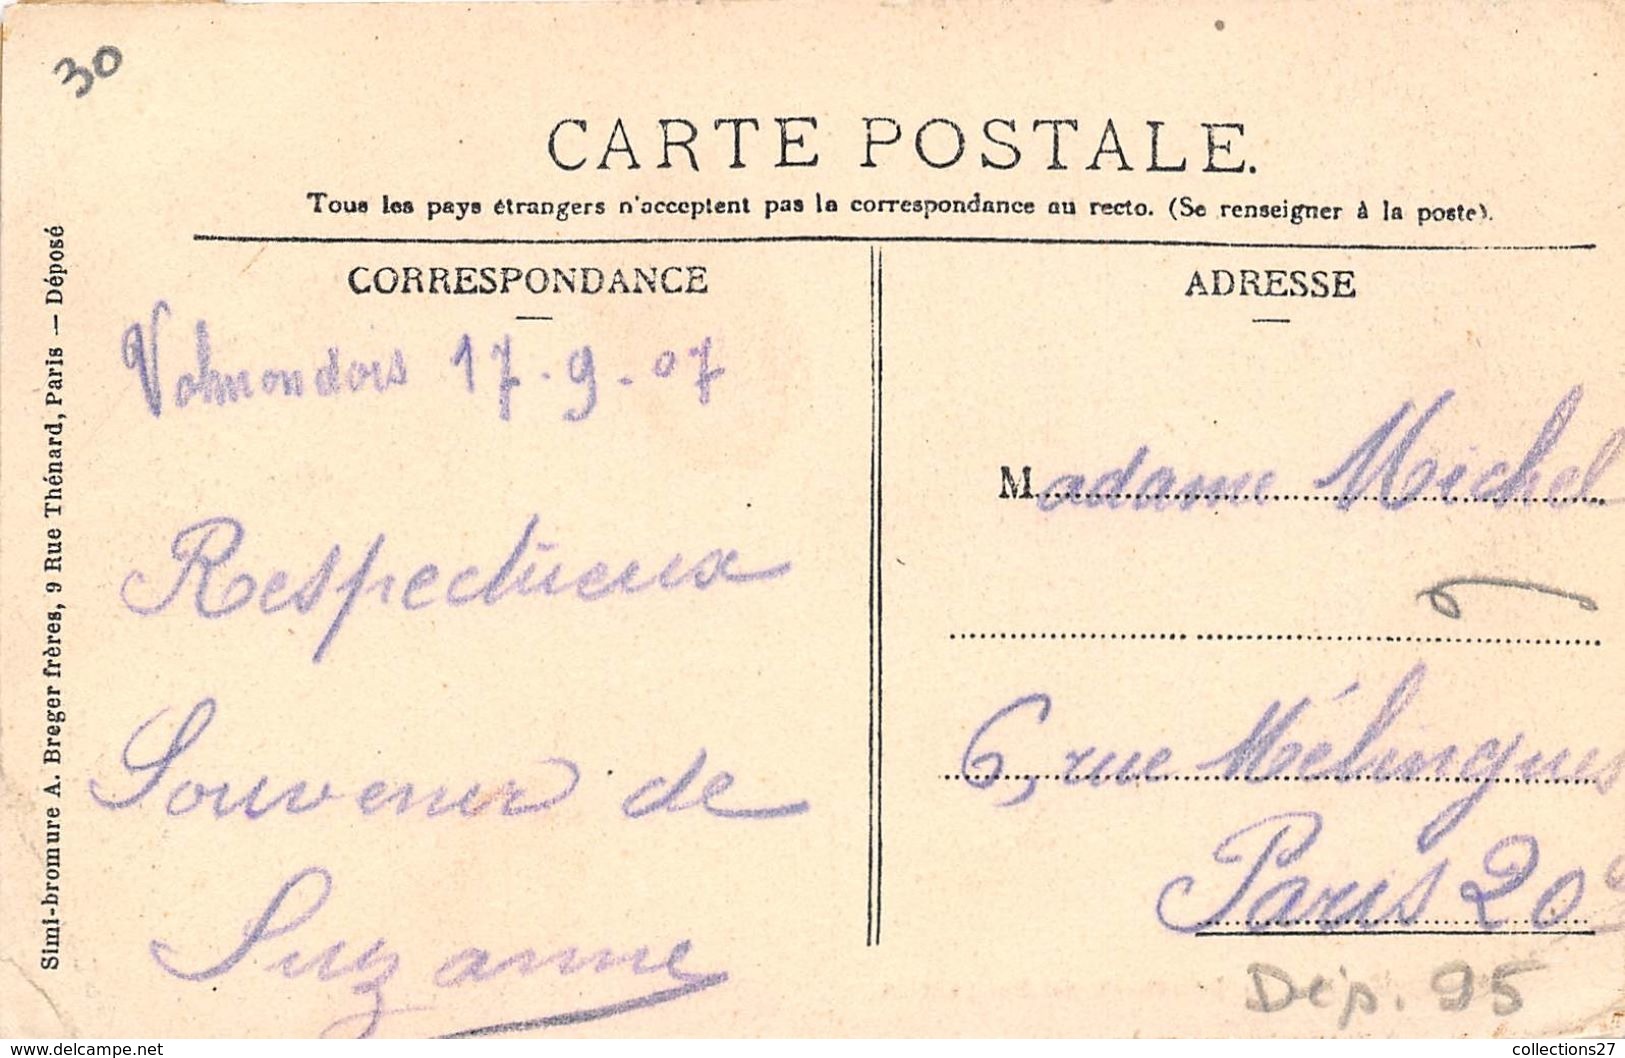 30
CARTE POSTALE.
Tous les pays étrangers n'acceptent pas la correspondance au recto. (Se renseigner à la poste).
CORRESPONDANCE
Valmondois 17-9-07
Respectueux
Souvenir de
Suzanne
ADRESSE
Madame Michel
6, rue Mélingues
Paris 20e
Dép. 95
Simi-bromure A. Breger frères, 9 Rue Thénard, Paris — Déposé
https://www.delcampe.net
collections27